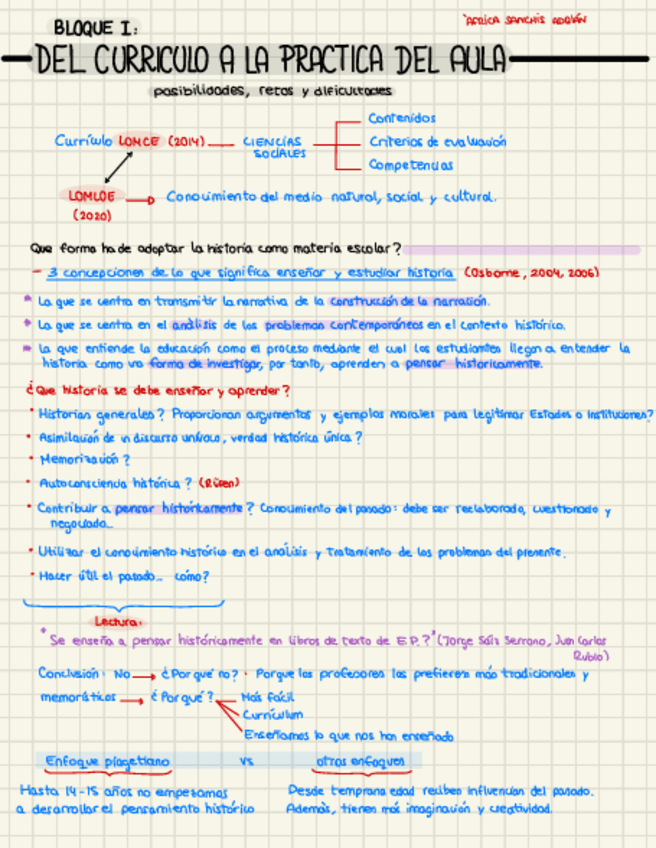 BLOQUE I:
ÁFRICA SANCHIS ADRIÁN
DEL CURRICULO A LA PRACTICA DEL AULA
posibilidades, retos y dificultades
Contenidos
Currículo LOMCE (2014) CIENCIAS SOCIALES Criterios de evaluación
Competencias
LOMLOE → Conocimiento del medio natural, social y cultural.
(2020)
Que forma ha de adoptar la historia como materia escolar?
- 3 concepciones de lo que significa enseñar y estudiar historia (Osborne, 2004, 2006)
* La que se centra en transmitir la narrativa de la construcción de la narración.
* La que se centra en el análisis de los problemas contemporáneos en el contexto histórico.
* La que entiende la educación como el proceso mediante el cual los estudiantes llegan a entender la
historia como una forma de investigar, por tanto, aprenden a pensar históricamente.
¿Que historia se debe enseñar y aprender?
• Historias generales? Proporcionan argumentos y ejemplos morales para legitimar Estados o Instituciones?
• Asimilación de un discurso unívoco, verdad histórica única?
• Memorización?
• Autoconsciencia histórica? (Rüsen)
• Contribuir a pensar históricamente? Conocimiento del pasado: debe ser reelaborado, cuestionado y
negociado...
• Utilizar el conocimiento histórico en el análisis y tratamiento de los problemas del presente.
• Hacer útil el pasado... cómo?
Lectura:
"Se enseña a pensar históricamente en libros de texto de E.P.?" (Jorge Sáiz Serrano, Juan Carlos
Rubio)
Conclusión: No → ¿Por qué no? · Porque los profesores los prefieren más tradicionales y
memorísticos → ¿Por qué? Más fácil
Currículum
Enseñamos lo que nos han enseñado
Enfoque piagetiano vs otros enfoques
Hasta 14-15 años no empezamos
a desarrollar el pensamiento histórico
Desde temprana edad reciben influencias del pasado.
Además, tienen más imaginación y creatividad.